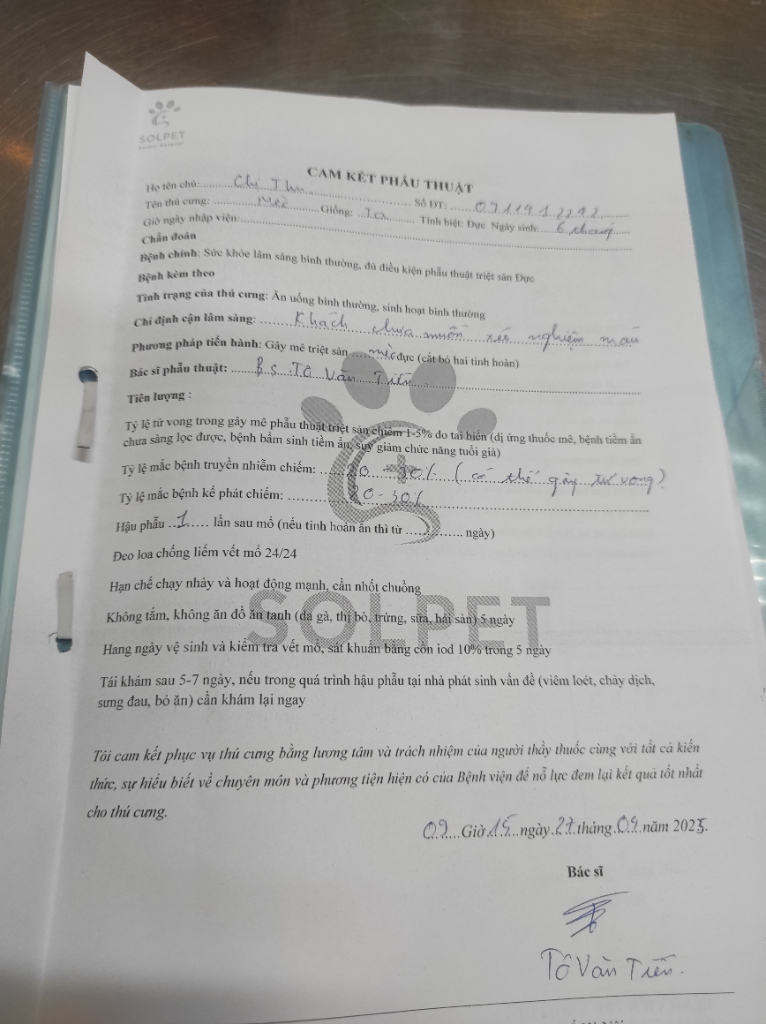 SOLPET
CAM KẾT PHẪU THUẬT
Họ tên chủ: Chị Thu Số ĐT:
Tên thú cưng: Giống: Ta Tính biệt: Đực Ngày sinh: 6 tháng
Giờ ngày nhập viện:
Chẩn đoán
Bệnh chính: Sức khỏe lâm sàng bình thường, đủ điều kiện phẫu thuật triệt sản Đực
Bệnh kèm theo
Tình trạng của thú cưng: Ăn uống bình thường, sinh hoạt bình thường
Chỉ định cận lâm sàng: Khách chưa muốn xét nghiệm máu
Phương pháp tiến hành: Gây mê triệt sản mèo đực (cắt bỏ hai tinh hoàn)
Bác sĩ phẫu thuật: B.S Tô Văn Tiến
Tiên lượng :
Tỷ lệ tử vong trong gây mê phẫu thuật triệt sản chiếm 1-5% do tai biến (dị ứng thuốc mê, bệnh tiềm ẩn
chưa sàng lọc được, bệnh bẩm sinh tiềm ẩn, suy giảm chức năng tuổi già)
Tỷ lệ mắc bệnh truyền nhiễm chiếm: 20 - 30% (có thể gây tử vong)
Tỷ lệ mắc bệnh kế phát chiếm: 20-30%
Hậu phẫu 1 lần sau mổ (nếu tinh hoàn ẩn thì từ ngày)
Đeo loa chống liếm vết mổ 24/24
Hạn chế chạy nhảy và hoạt động mạnh, cần nhốt chuồng
Không tắm, không ăn đồ ăn tanh (da gà, thị bò, trứng, sữa, hải sản) 5 ngày
SOLPET
Hang ngày vệ sinh và kiểm tra vết mổ, sát khuẩn bằng cồn iod 10% trong 5 ngày
Tái khám sau 5-7 ngày, nếu trong quá trình hậu phẫu tại nhà phát sinh vấn đề (viêm loét, chảy dịch,
sưng đau, bỏ ăn) cần khám lại ngay
Tôi cam kết phục vụ thú cưng bằng lương tâm và trách nhiệm của người thầy thuốc cùng với tất cả kiến
thức, sự hiểu biết về chuyên môn và phương tiện hiện có của Bệnh viện để nỗ lực đem lại kết quả tốt nhất
cho thú cưng.
09 Giờ 15 ngày 27 tháng 09 năm 2025.
Bác sĩ
Tô Văn Tiến.